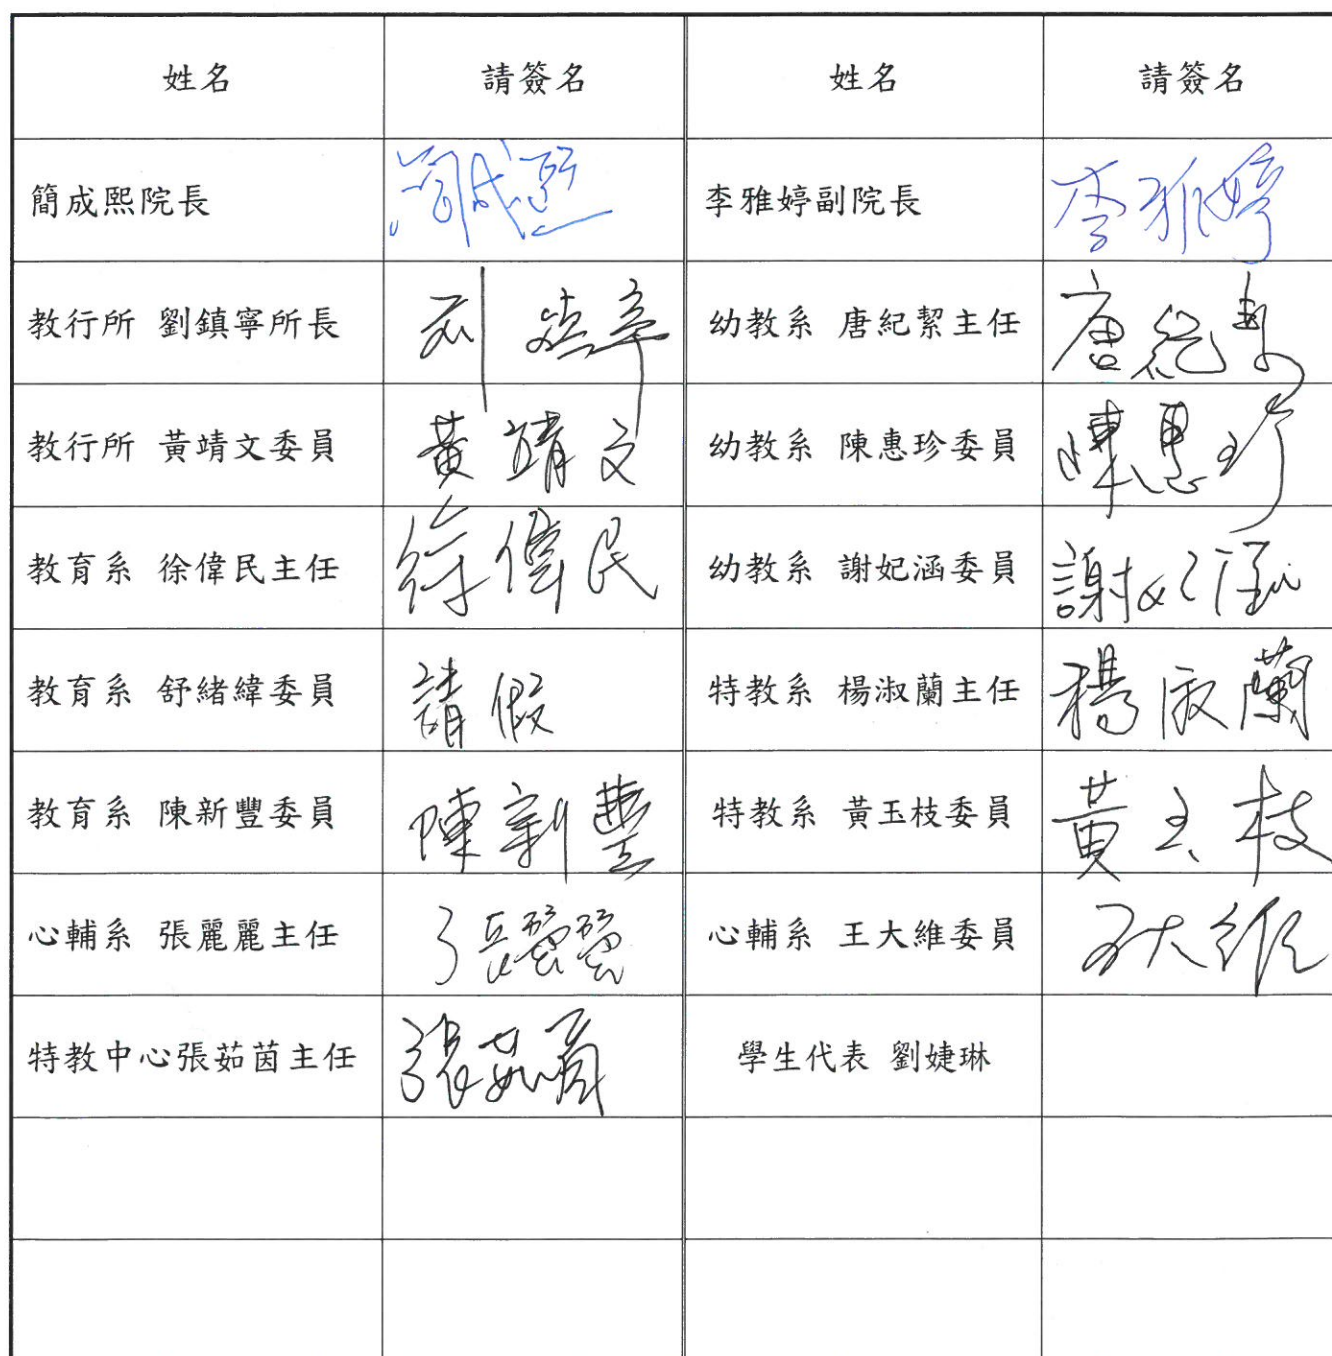 姓名 請簽名 姓名 請簽名
簡成熙院長 簡成熙 李雅婷副院長 李雅婷
教行所 劉鎮寧所長 刘鎮寧 幼教系 唐紀絜主任 唐紀絜
教行所 黃靖文委員 黃靖文 幼教系 陳惠珍委員 陳惠珍
教育系 徐偉民主任 徐偉民 幼教系 謝妃涵委員 謝妃涵
教育系 舒緒緯委員 請假 特教系 楊淑蘭主任 楊淑蘭
教育系 陳新豐委員 陳新豐 特教系 黃玉枝委員 黃玉枝
心輔系 張麗麗主任 張麗麗 心輔系 王大維委員 王大維
特教中心張茹茵主任 張茹茵 學生代表 劉婕琳